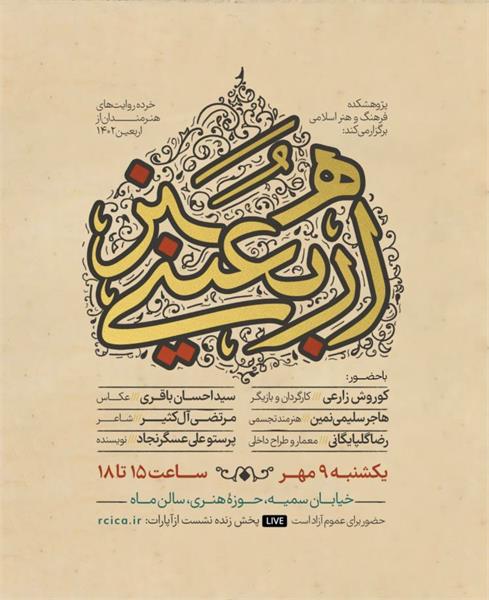 پژوهشکده
فرهنگ و هنر اسلامی
برگزار می‌کند:
خرده روایت‌های
هنرمندان از
اربعین ۱۴۰۲
هنر
اربعینی
باحضور:
کوروش زارعی /// کارگردان و بازیگر
سیداحسان باقری /// عکاس
هاجر سلیمی نمین /// هنرمند تجسمی
مرتضی آل کثیر /// شاعر
رضا گلپایگانی /// معمار و طراح داخلی
پرستو علی عسگرنجاد /// نویسنده
یکشنبه ۹ مهر
ساعت ۱۵ تا ۱۸
خیابان سمیه، حوزهٔ هنری، سالن ماه
حضور برای عموم آزاد است LIVE پخش زنده نشست از آپارات: rcica.ir